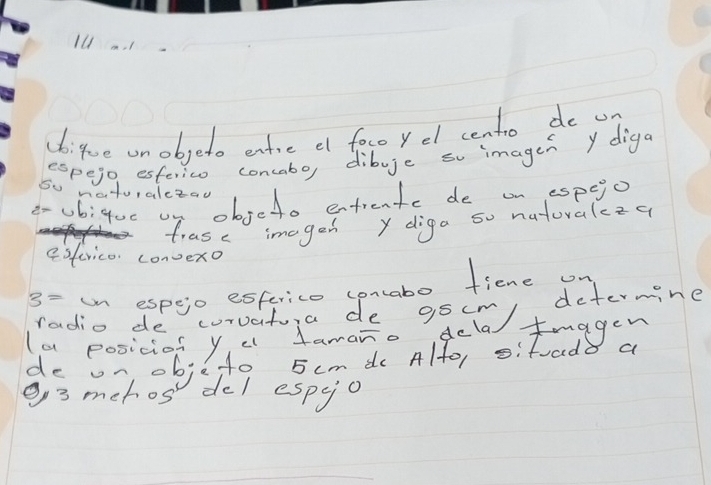 Ubique un objeto entre el foco y el centro de un
espejo esferico concabo, dibuje su imagen y diga
su naturaleza
2= ubique un objeto enfrente de un espejo
frase imagen y diga su naturaleza
esferico. convexo
3= un espejo esferico concabo tiene un
radio de curvatura de 0,5 cm, determine
la posicion y el tamaño dela Imagen
de un objeto 5 cm de Alto, situado a
0,3 metros del espejo